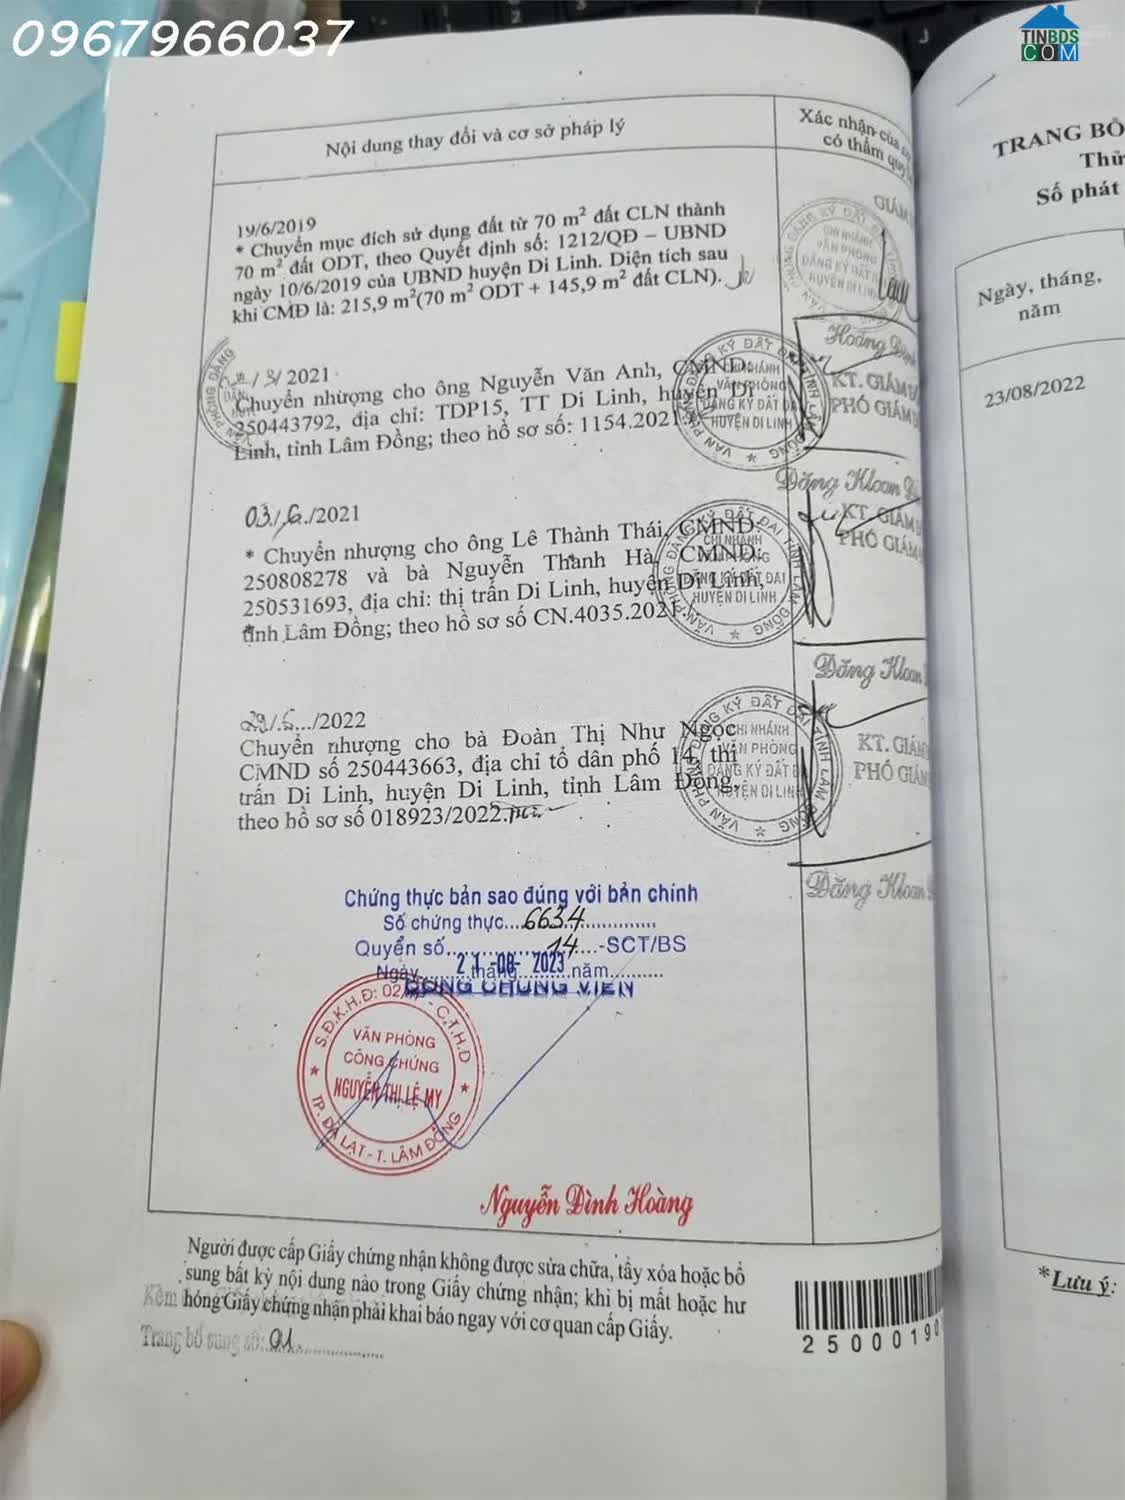 0967966037
TINBDS
COM
Nội dung thay đổi và cơ sở pháp lý
Xác nhận của
có thẩm quy
19/6/2019
* Chuyển mục đích sử dụng đất từ 70 m² đất CLN thành
70 m² đất ODT, theo Quyết định số: 1212/QĐ – UBND
ngày 10/6/2019 của UBND huyện Di Linh. Diện tích sau
khi CMĐ là: 215,9 m²(70 m² ODT + 145,9 m² đất CLN).
/3/2021
Chuyển nhượng cho ông Nguyễn Văn Anh, CMND:
250443792, địa chỉ: TDP15, TT Di Linh, huyện Di
Linh, tỉnh Lâm Đồng; theo hồ sơ số: 1154.2021
CHI NHÁNH
VĂN PHÒNG
ĐĂNG KÝ ĐẤT ĐAI
HUYỆN DI LINH
KT. GIÁM
PHÓ GIÁM
Đăng Kloan
03/6/2021
* Chuyển nhượng cho ông Lê Thành Thái, CMND:
250808278 và bà Nguyễn Thanh Hà, CMND:
250531693, địa chỉ: thị trấn Di Linh, huyện Di Linh,
tỉnh Lâm Đồng; theo hồ sơ số CN.4035.2021
CHI NHÁNH
VĂN PHÒNG
ĐĂNG KÝ ĐẤT ĐAI
HUYỆN DI LINH
KT. GIÁM
PHÓ GIÁM
Đăng Kloan
29/6/2022
Chuyển nhượng cho bà Đoàn Thị Như Ngọc
CMND số 250443663, địa chỉ tổ dân phố 14, thị
trấn Di Linh, huyện Di Linh, tỉnh Lâm Đồng,
theo hồ sơ số 018923/2022
CHI NHÁNH
VĂN PHÒNG
ĐĂNG KÝ ĐẤT Đ
HUYỆN DI LINH
KT. GIÁM
PHÓ GIÁM
Đăng Kloan
Chứng thực bản sao đúng với bản chính
Số chứng thực....6634..............
Quyển số..................14....-SCT/BS
Ngày 21 tháng -08- 2023 năm
CÔNG CHỨNG VIÊN
VĂN PHÒNG
CÔNG CHỨNG
NGUYỄN THỊ LỆ MY
TP. ĐÀ LẠT - T. LÂM ĐỒNG
Nguyễn Đình Hoàng
Người được cấp Giấy chứng nhận không được sửa chữa, tẩy xóa hoặc bổ
sung bất kỳ nội dung nào trong Giấy chứng nhận; khi bị mất hoặc hư
hỏng Giấy chứng nhận phải khai báo ngay với cơ quan cấp Giấy.
Kèm
Trang bổ sung số: 01
2500019
TRANG BỔ
Thử
Số phát
Ngày, tháng,
năm
23/08/2022
*Lưu ý: